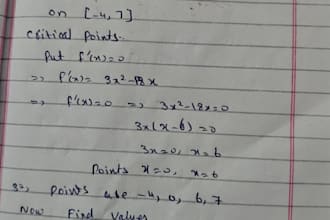 on [-4, 7]
Critical Points.
Put f'(x)=0
=> f'(x)= 3x²-18x
=> f'(x)=0 => 3x²-18x=0
3x(x-6)=0
3x=0, x=6
Points x=0, x=6
So, Points are -4, 0, 6, 7
Now Find Values